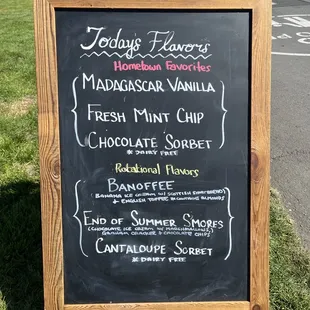 Today's Flavors
Hometown Favorites
MADAGASCAR VANILLA
FRESH MINT CHIP
CHOCOLATE SORBET
* DAIRY FREE
Rotational Flavors
BANOFFEE
(BANANA ICE CREAM W/ SCOTTISH SHORTBREAD
& ENGLISH TOFFEE * CONTAINS ALMONDS)
END OF SUMMER S'MORES
(CHOCOLATE ICE CREAM W/ MARSHMALLOWS,
GRAHAM CRACKER & CHOCOLATE CHIPS)
CANTALOUPE SORBET
* DAIRY FREE